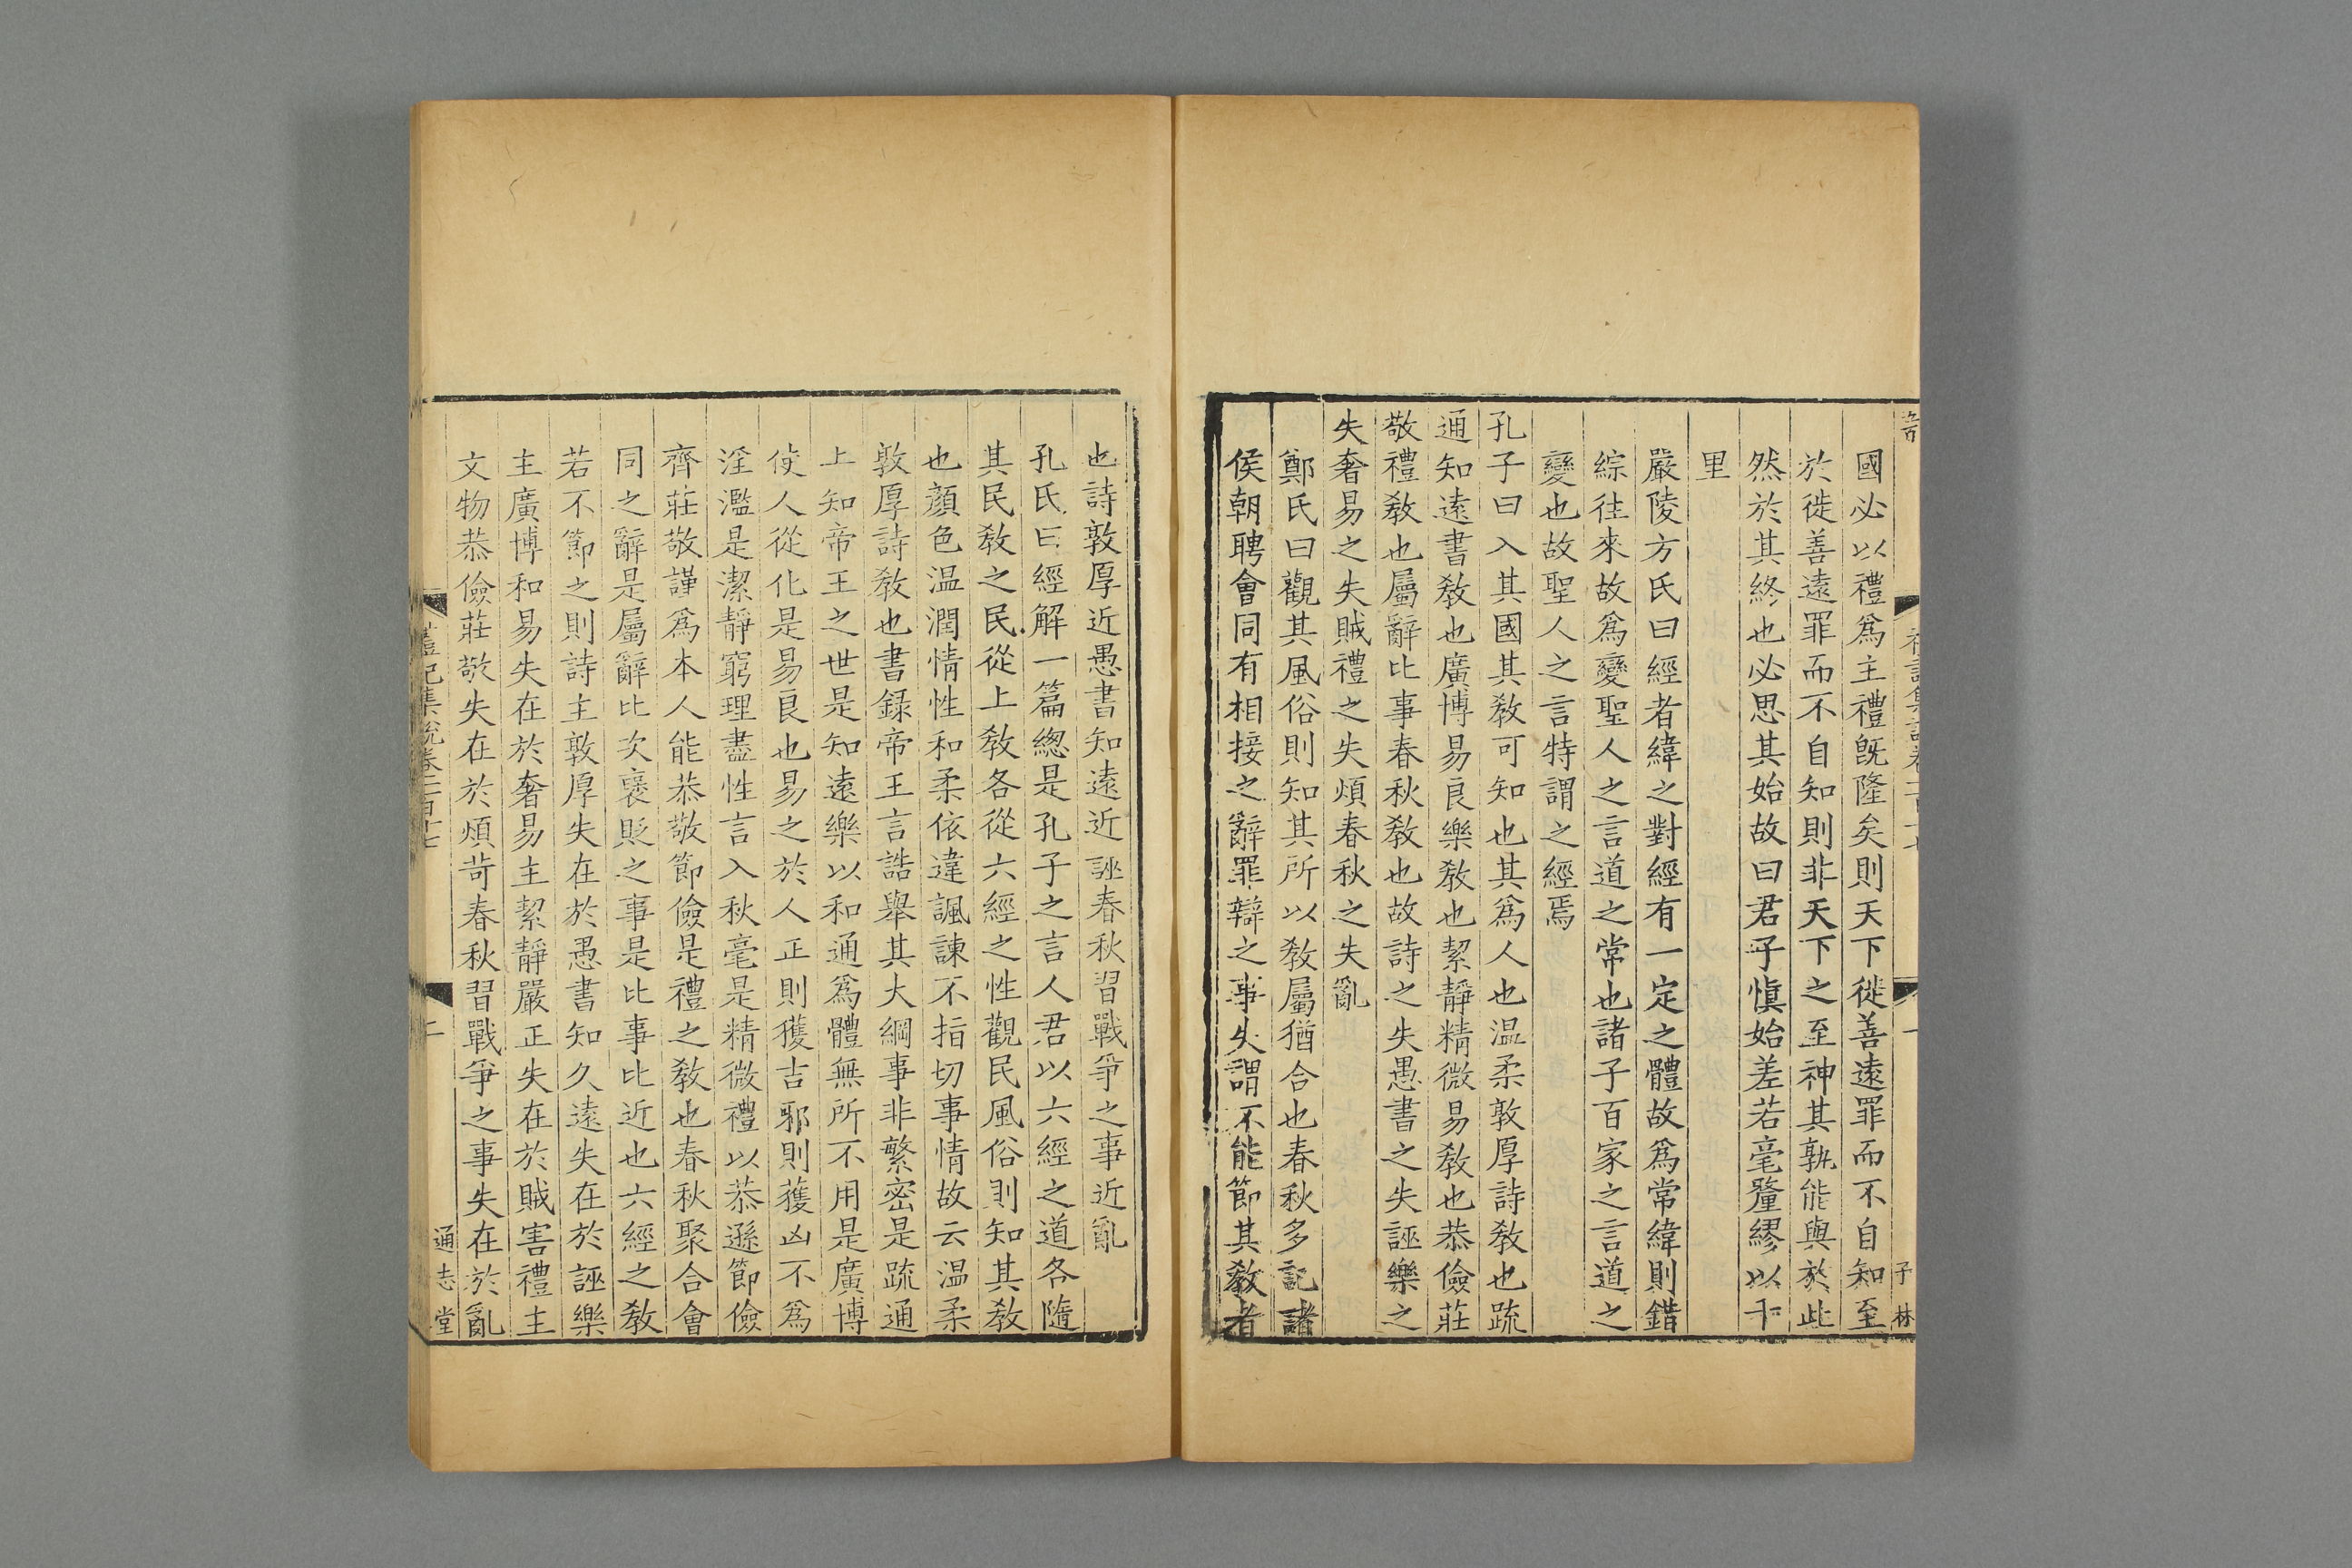 國必以禮爲主禮旣隆矣則天下徙善遠罪而不自知至
於徙善遠罪而不自知則非天下之至神其孰能與於此
然於其終也必思其始故曰君子愼始差若毫釐繆以千
里
嚴陵方氏曰經者緯之對經有一定之體故爲常緯則錯
綜往來故爲變聖人之言道之常也諸子百家之言道之
變也故聖人之言特謂之經焉
孔子曰入其國其敎可知也其爲人也温柔敦厚詩敎也疏
通知遠書敎也廣博易良樂敎也絜靜精微易敎也恭儉莊
敬禮敎也屬辭比事春秋敎也故詩之失愚書之失誣樂之
失奢易之失賊禮之失煩春秋之失亂
鄭氏曰觀其風俗則知其所以敎屬猶合也春秋多記諸
侯朝聘會同有相接之辭罪辯之事失謂不能節其敎者
子林
也詩敦厚近愚書知遠近誣春秋習戰爭之事近亂
孔氏曰經解一篇緫是孔子之言人君以六經之道各隨
其民敎之民從上敎各從六經之性觀民風俗則知其敎
也顏色温潤情性和柔依違諷諫不指切事情故云温柔
敦厚詩敎也書録帝王言誥舉其大綱事非繁密是疏通
上知帝王之世是知遠樂以和通爲體無所不用是廣博
使人從化是易良也易之於人正則獲吉邪則獲凶不爲
淫濫是潔靜窮理盡性言入秋毫是精微禮以恭遜節儉
齊莊敬謹爲本人能恭敬節儉是禮之敎也春秋聚合會
同之辭是屬辭比次襃貶之事是比事比近也六經之敎
若不節之則詩主敦厚失在於愚書知久遠失在於誣樂
主廣博和易失在於奢易主絜靜嚴正失在於賊害禮主
文物恭儉莊敬失在於煩苛春秋習戰爭之事失在於亂
禮記集說卷一百十七
二
通志堂